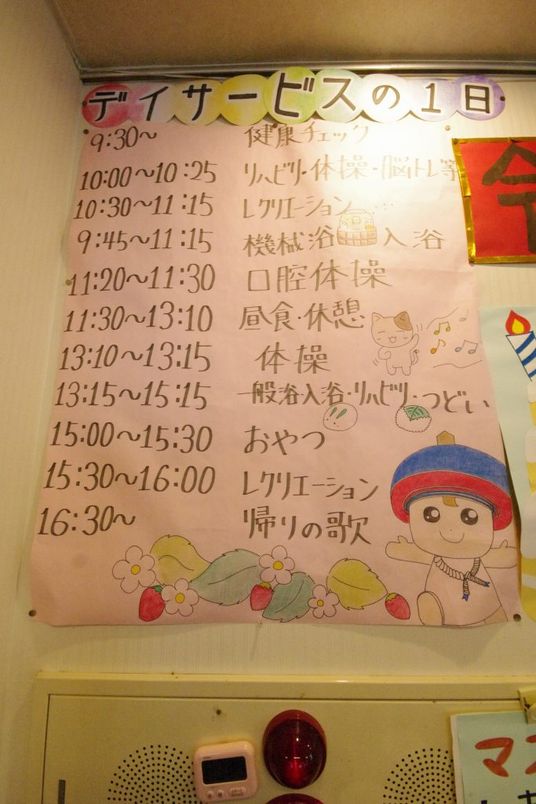 デイサービスの1日
9:30～ 健康チェック
10:00～10:25 リハビリ・体操・脳トレ等
10:30～11:15 レクリエーション・・・
9:45～11:15 機械浴 入浴
11:20～11:30 口腔体操
11:30～13:10 昼食・休憩
13:10～13:15 体操
13:15～15:15 一般浴入浴・リハビリ・つどい
15:00～15:30 おやつ
15:30～16:00 レクリエーション
16:30～ 帰りの歌
マス